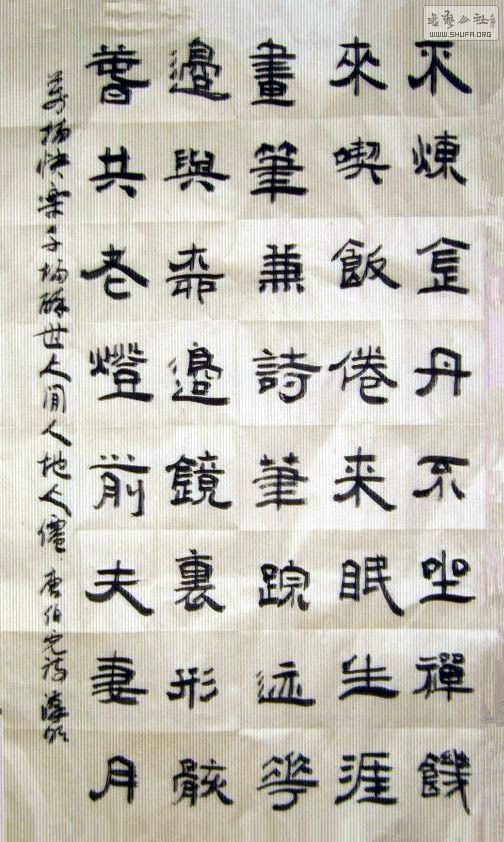 書藝公社
WWW.SHUFA.ORG
不煉金丹不坐禪饑
來喫飯倦来眠生涯
畫筆兼詩筆踪迹花
邊與柳邊鏡裏形骸
萅共老燈前夫妻月
萬場快樂千場醉世上閒人地上僊 唐伯虎詩